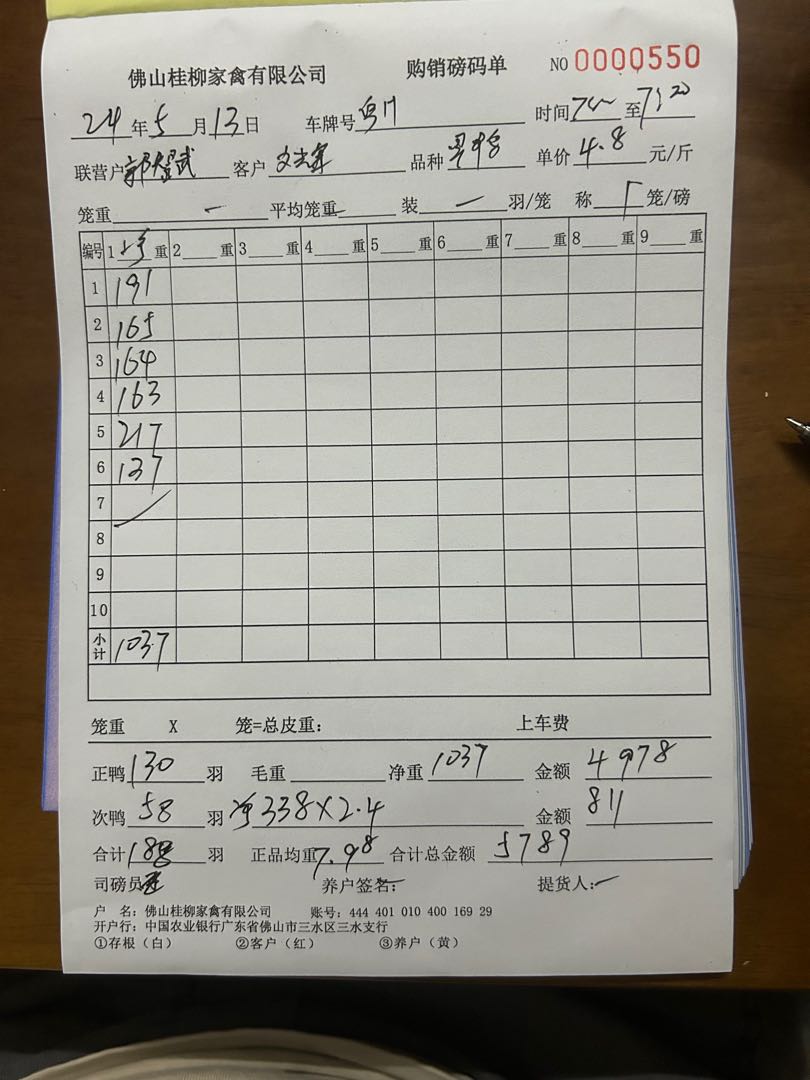 佛山桂柳家禽有限公司 购销磅码单 NO 0000550
24年5月13日 车牌号 时间 至7:20
联营户 客户 品种 单价4.8元/斤
笼重 — 平均笼重 — 装 — 羽/笼 称 笼/磅
编号 1 重 2 重 3 重 4 重 5 重 6 重 7 重 8 重 9 重
1 191
2 165
3 164
4 163
5 217
6 137
7
8
9
10
小计 1037
笼重 X 笼=总皮重： 上车费
正鸭130羽 毛重 净重1037 金额4978
次鸭58羽 净338×2.4 金额811
合计188羽 正品均重7.98 合计总金额5789
司磅员 养户签名： 提货人：
户 名：佛山桂柳家禽有限公司 账号：444 401 010 400 169 29
开户行：中国农业银行广东省佛山市三水区三水支行
①存根（白） ②客户（红） ③养户（黄）